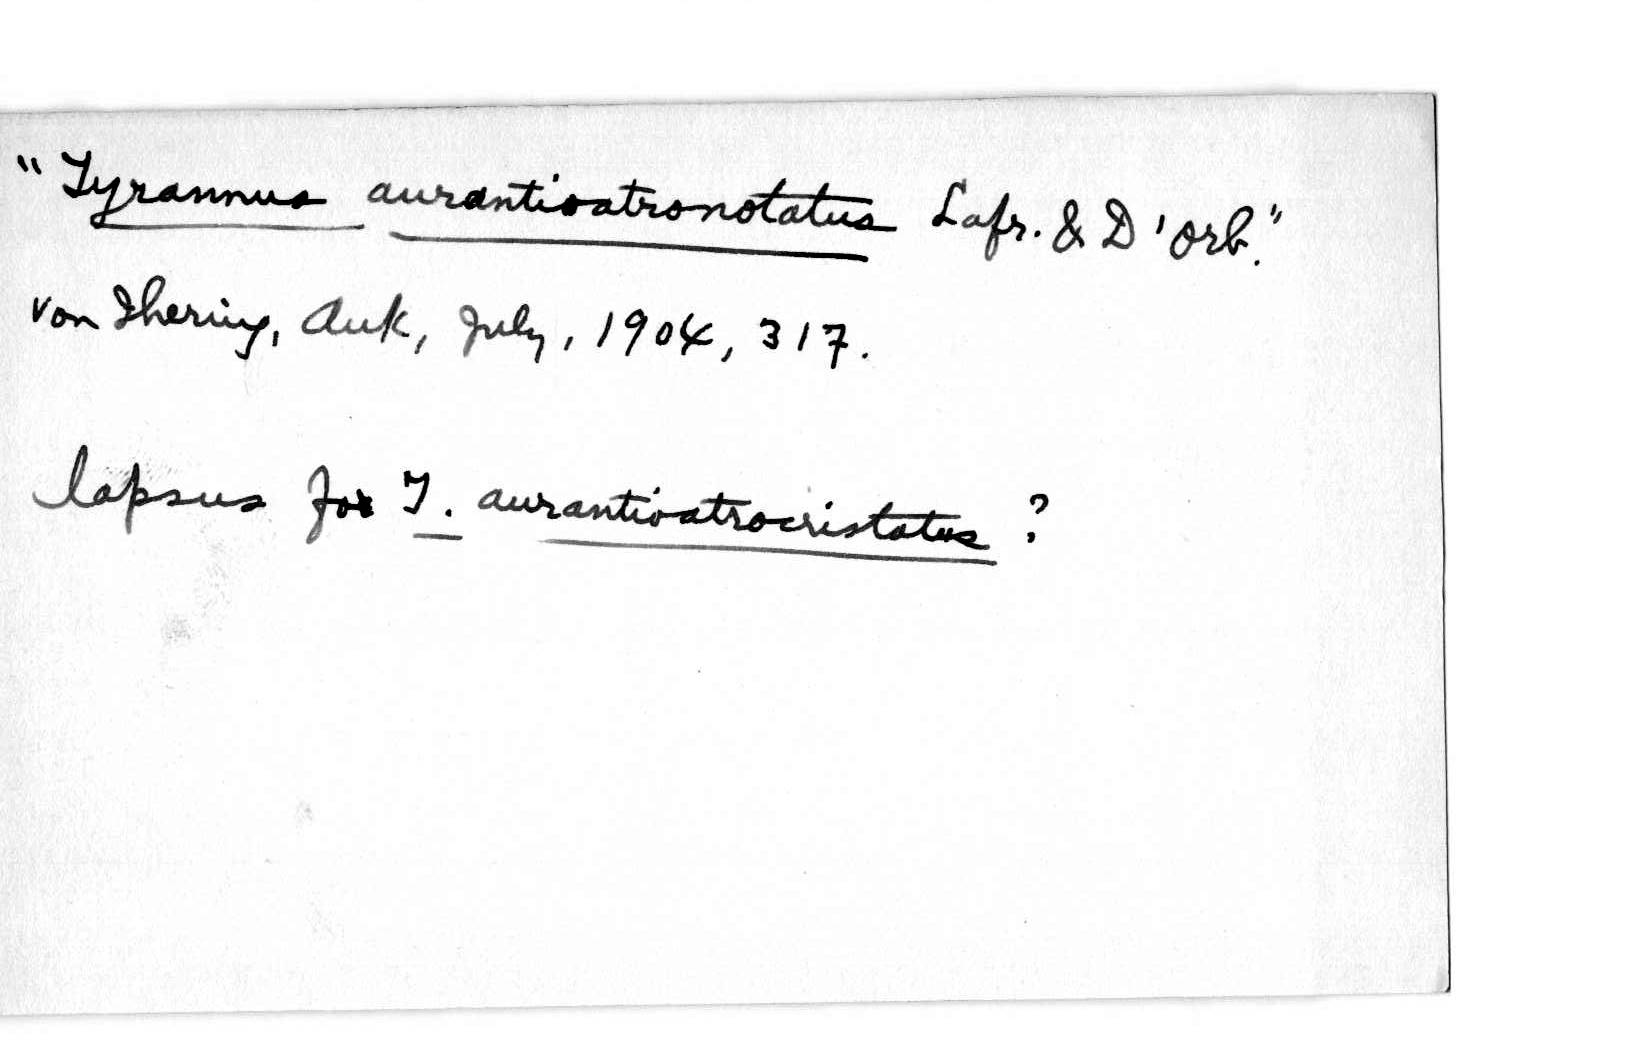 "Tyrannus aurantioatronotatus Lafr. & D'Orb."
von Ihering, Auk, July, 1904, 317.
lapsus for T. aurantioatrocristatus ?